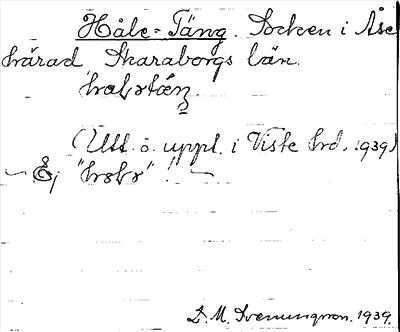 Håle-Täng. Socken i Åse
härad, Skaraborgs län.
(Utt. o. uppl. i Viste hrd. 1939)
— Ej " " ! —
D. M. Svenungson. 1939.